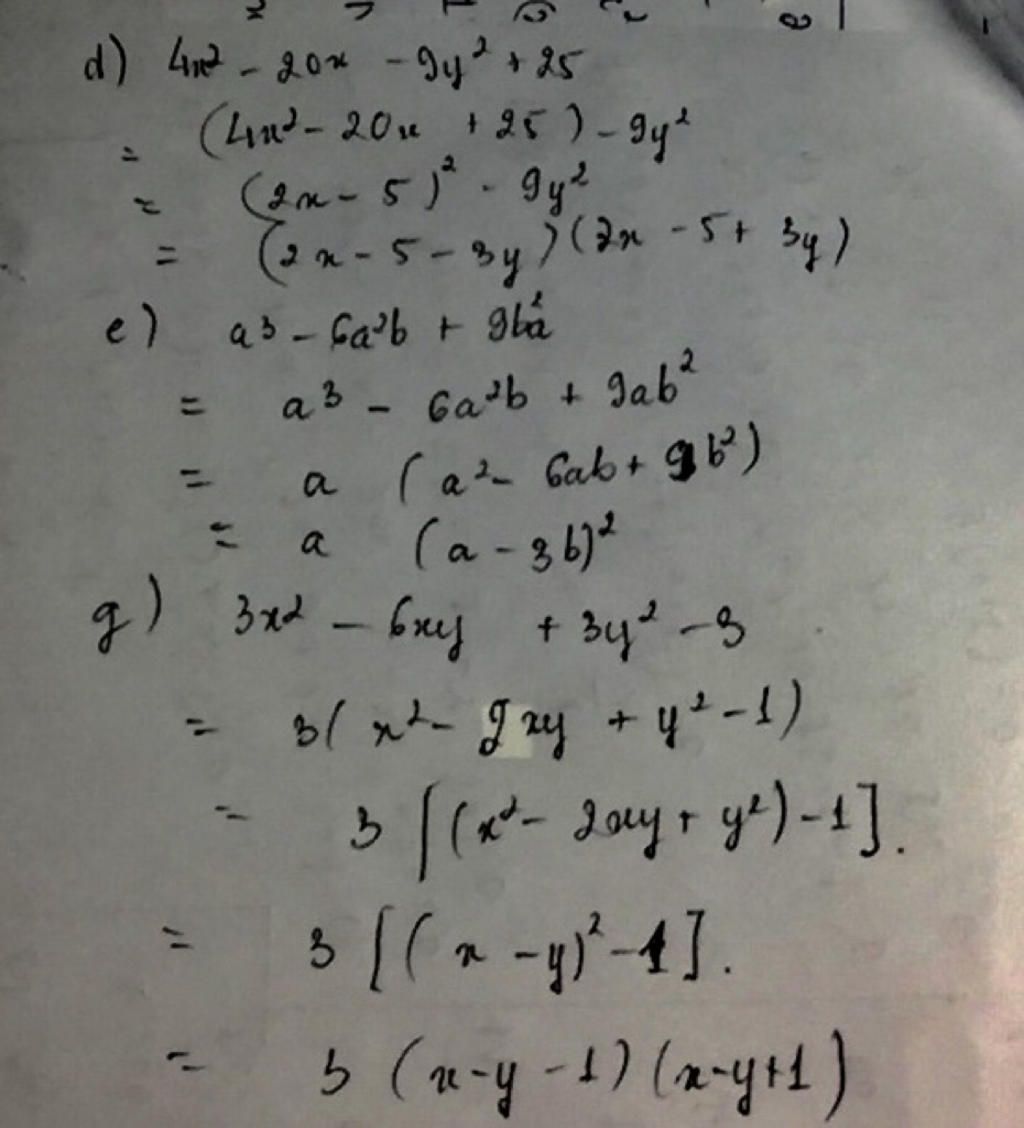 d) 4x² - 20x - 9y² + 25
= (4x² - 20x + 25) - 9y²
= (2x - 5)² - 9y²
= (2x - 5 - 3y)(2x - 5 + 3y)
e) a³ - 6a²b + 9b²a
= a³ - 6a²b + 9ab²
= a (a² - 6ab + 9b²)
= a (a - 3b)²
g) 3x² - 6xy + 3y² - 3
= 3(x² - 2xy + y² - 1)
= 3 [(x² - 2xy + y²) - 1].
= 3 [(x - y)² - 1].
= 3 (x - y - 1)(x - y + 1)